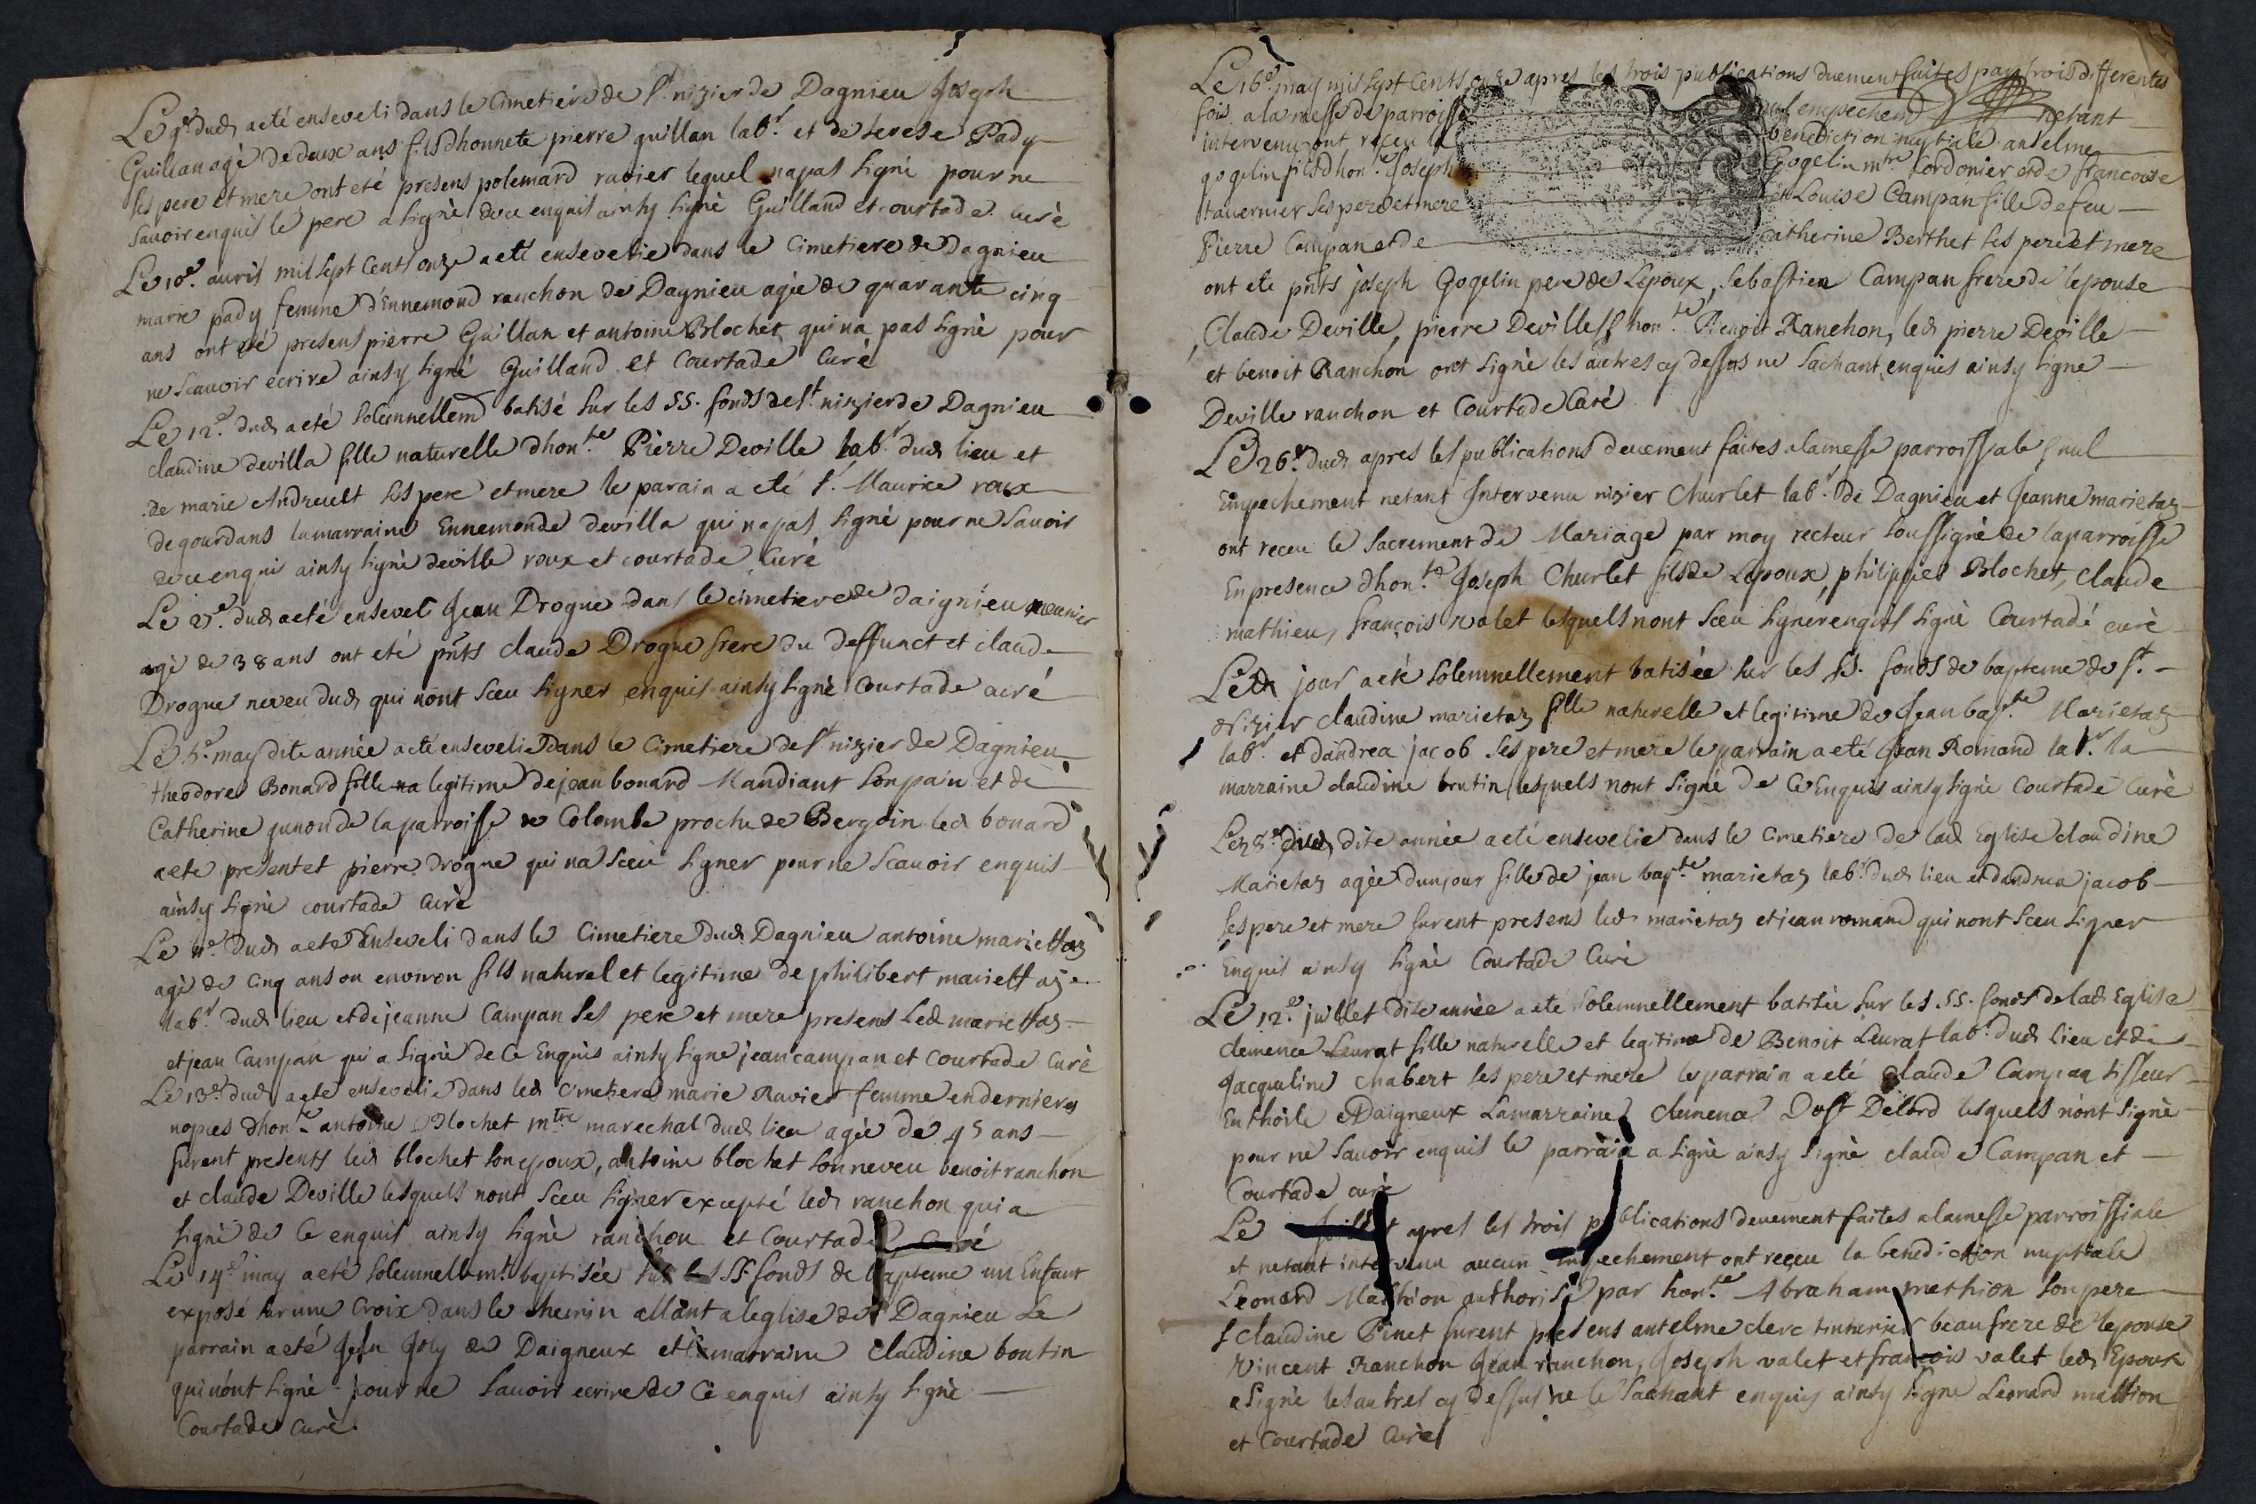 Le 9e. dud. a eté enseveli dans le Cimetiére de St. nizier de Dagnieu Joseph
Guillan agé de deux ans fils dhonnete pierre guillan labr. et de terese Pady
ses pere et mere ont eté presens polemard ravier lequel napas signé pour ne
savoir enquis le pere a signé de ce enquis ainsy signé Guilland et courtade curé
Le 10e. auril mil sept cents onze a eté ensevelie dans le Cimetiere de Dagnieu
marie pady femme d'Ennemond ranchon de Dagnieu agée de quarante cinq
ans ont eté presens pierre Guillan et antoine Blochet qui na pas signé pour
ne scauoir ecrire ainsy signé Guilland et Courtade Curé
Le 12e. dud. a eté solemnellemt batisé sur les SS. fonds de st. nizier de Dagnieu
claudine devilla fille naturelle dhonte. Pierre Deville labr. dud. lieu et
de marie Andreult ses pere et mere le parain a eté sr. Maurice roux
de gourdans la marraine Ennemonde devilla qui napas signé pour ne savoir
de ce enquis ainsy signé deville roux et courtade Curé
Le 27e. dud. a eté enseveli Jean Drogue dans le cimetiere de daignieu meunier
agé de 38 ans ont eté pnts claude Drogue frere du deffunct et claude
Drogue neveu dud. qui nont sceu signer enquis ainsy signé Courtade curé
Le 5e. may dite année a eté ensevelie dans le Cimetiere de st. nizier de Dagnieu
theodore Bonard fille na legitime de jean bonard Mandiant son pain et de
Catherine gunon de la parroisse de Colombe proche de Bergoin led. bonard
a ete present et pierre drogue qui na sceu signer pour ne scauoir enquis
ainsy signé courtade curé
Le 11e. dud. a eté Enseveli dans le Cimetiere dud. Dagnieu antoine mariettaz
agé de cinq ans ou environ fils naturel et legitime de philibert mariettaz
labr. dud. lieu et de jeanne Campan ses pere et mere presens Led. mariettaz
et jean Campan qui a signé de ce Enquis ainsy signe jean campan et courtade Curé
Le 13e. dud. a eté ensevelie dans led. Cimetiere marie Ravier femme en dernieres
nopces dhonte. antoine Blochet mtre marechal dud. lieu agée de 45 ans
furent presents led. blochet son epoux, antoine blochet son neveu benoit ranchon
et claude Deville lesquels nont sceu signer excepté led. ranchon qui a
signé de ce enquis ainsy signé ranchon et Courtade Curé
Le 14e may a eté solemnellemt. baptisée sur les SS. fonds de bapteme un Enfant
exposé sur une Croix dans le chemin allant a leglise de Dagnieu Le
parrain a eté Jean Joly de Daigneux et la marraine Claudine boutin
qui n'ont signé pour ne savoir ecrire de ce enquis ainsy signé
Courtade curé.
Le 16e. may mil sept cents onze apres les trois publications duement faites par trois differentes
fois a la messe de parroisse nul empechemt netant
intervenu ont reçeu la benediction nuptiale anselme
gogelin fils dhonte. Joseph Gogelin mtre. Cordonier et de francoise
tavernier ses pere et mere et Louise Campan fille de feu
Pierre Campan et de Catherine Berthet ses pere et mere
ont ete pnts joseph Gogelin pere de Lepoux, Sebastien Campan frere de lepouse
Claude Deville, pierre Deville honte. Benoit Ranchon, led. pierre Deville
et benoit Ranchon ont signé les autres cy dessus ne sachant enquis ainsy signe
Deville ranchon et Courtade Curé
Le 26e. dud. apres les publications deuement faites a la messe parroissale nul
Empechement netant Intervenu nizier Churlet labr. de Dagnieu et Jeanne marietaz
ont receu le Sacrement de Mariage par moy recteur soussigné de la parroisse
En presence dhonte. Joseph Churlet fils de Lepoux, philippes Blochet, claude
mathieu, françois valet lesquels nont sceu signer enquis signé Courtadé curé
Led. jour a eté solemnellement batisée sur les SS. fonds de bapteme de st.
Nizier claudine marietaz fille naturelle et legitime de Jean bapte. Marietaz
labr. et dandrea jacob ses pere et mere le parrain a eté Jean Romand labr. la
marraine claudine brutin lesquels nont signé de ce Enquis ainsy signé Courtade Curé
Le 28e. dud. dite année a eté ensevelie dans le Cimetiere de lad. Eglise claudine
Marietaz agée dunjour fille de jean bapte. marietaz labr. dud. lieu et dandrea jacob
ses pere et mere furent presens led. marietaz et jean romand qui nont sceu signer
Enquis ainsy signé Courtade Curé
Le 12e. juillet dite année a eté solemnellement batisée sur les SS. fonds de lad. Eglise
clemence Leurat fille naturelle et legitime de Benoit Leurat labr. dud. lieu et de
Jacqueline Chabert ses pere et mere le parrain a eté Claude Campan tisseur
En thoile Daigneux La marraine clemence Dost Delord lesquels n'ont signé
pour ne savoir enquis le parrain a signé ainsy signé claude Campan et
Courtade curé
Le juillet apres les trois publications deuement faites a la messe parroissiale
et netant intervenu aucun Empechement ont reçeu la benediction nuptiale
Leonard Mathion authorisé par honte. Abraham mathion son pere
& claudine Pinet furent presens antelme clerc tinturier beau frere de lepouse
Vincent Ranchon Jean ranchon, Joseph valet et françois valet led. Epoux
a signé les autres cy dessus ne le sachant enquis ainsy signe Leonard mathion
et Courtade Curé